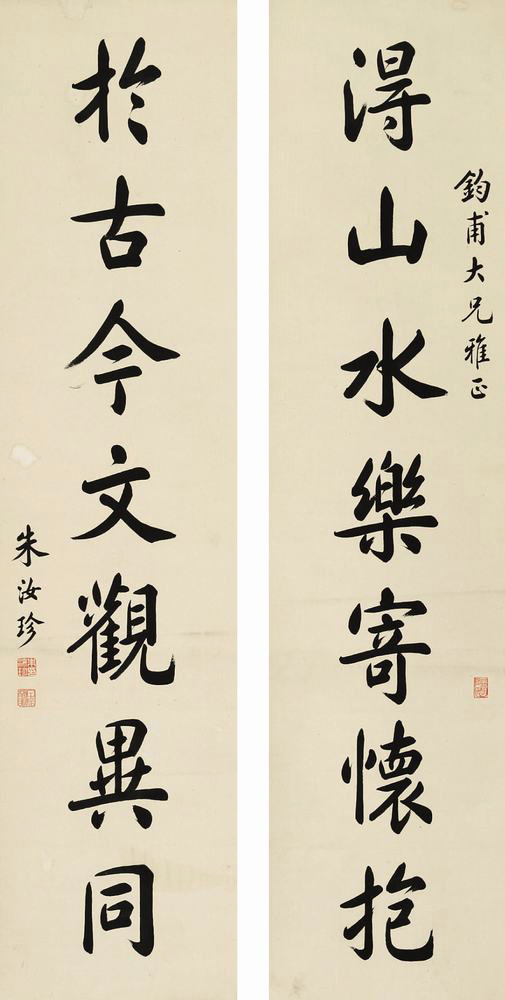 鈞甫大兄雅正
淂山水樂寄懷抱
於古今文觀異同
朱汝珍